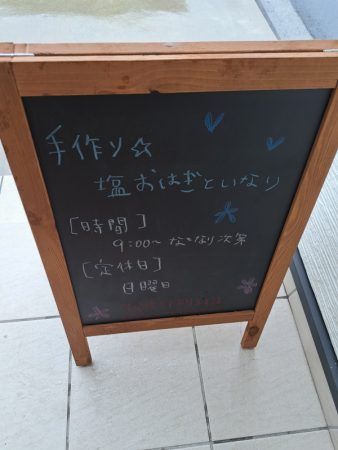 手作り☆
塩おはぎといなり
[時間]
9:00〜 なくなり次第
[定休日]
日曜日